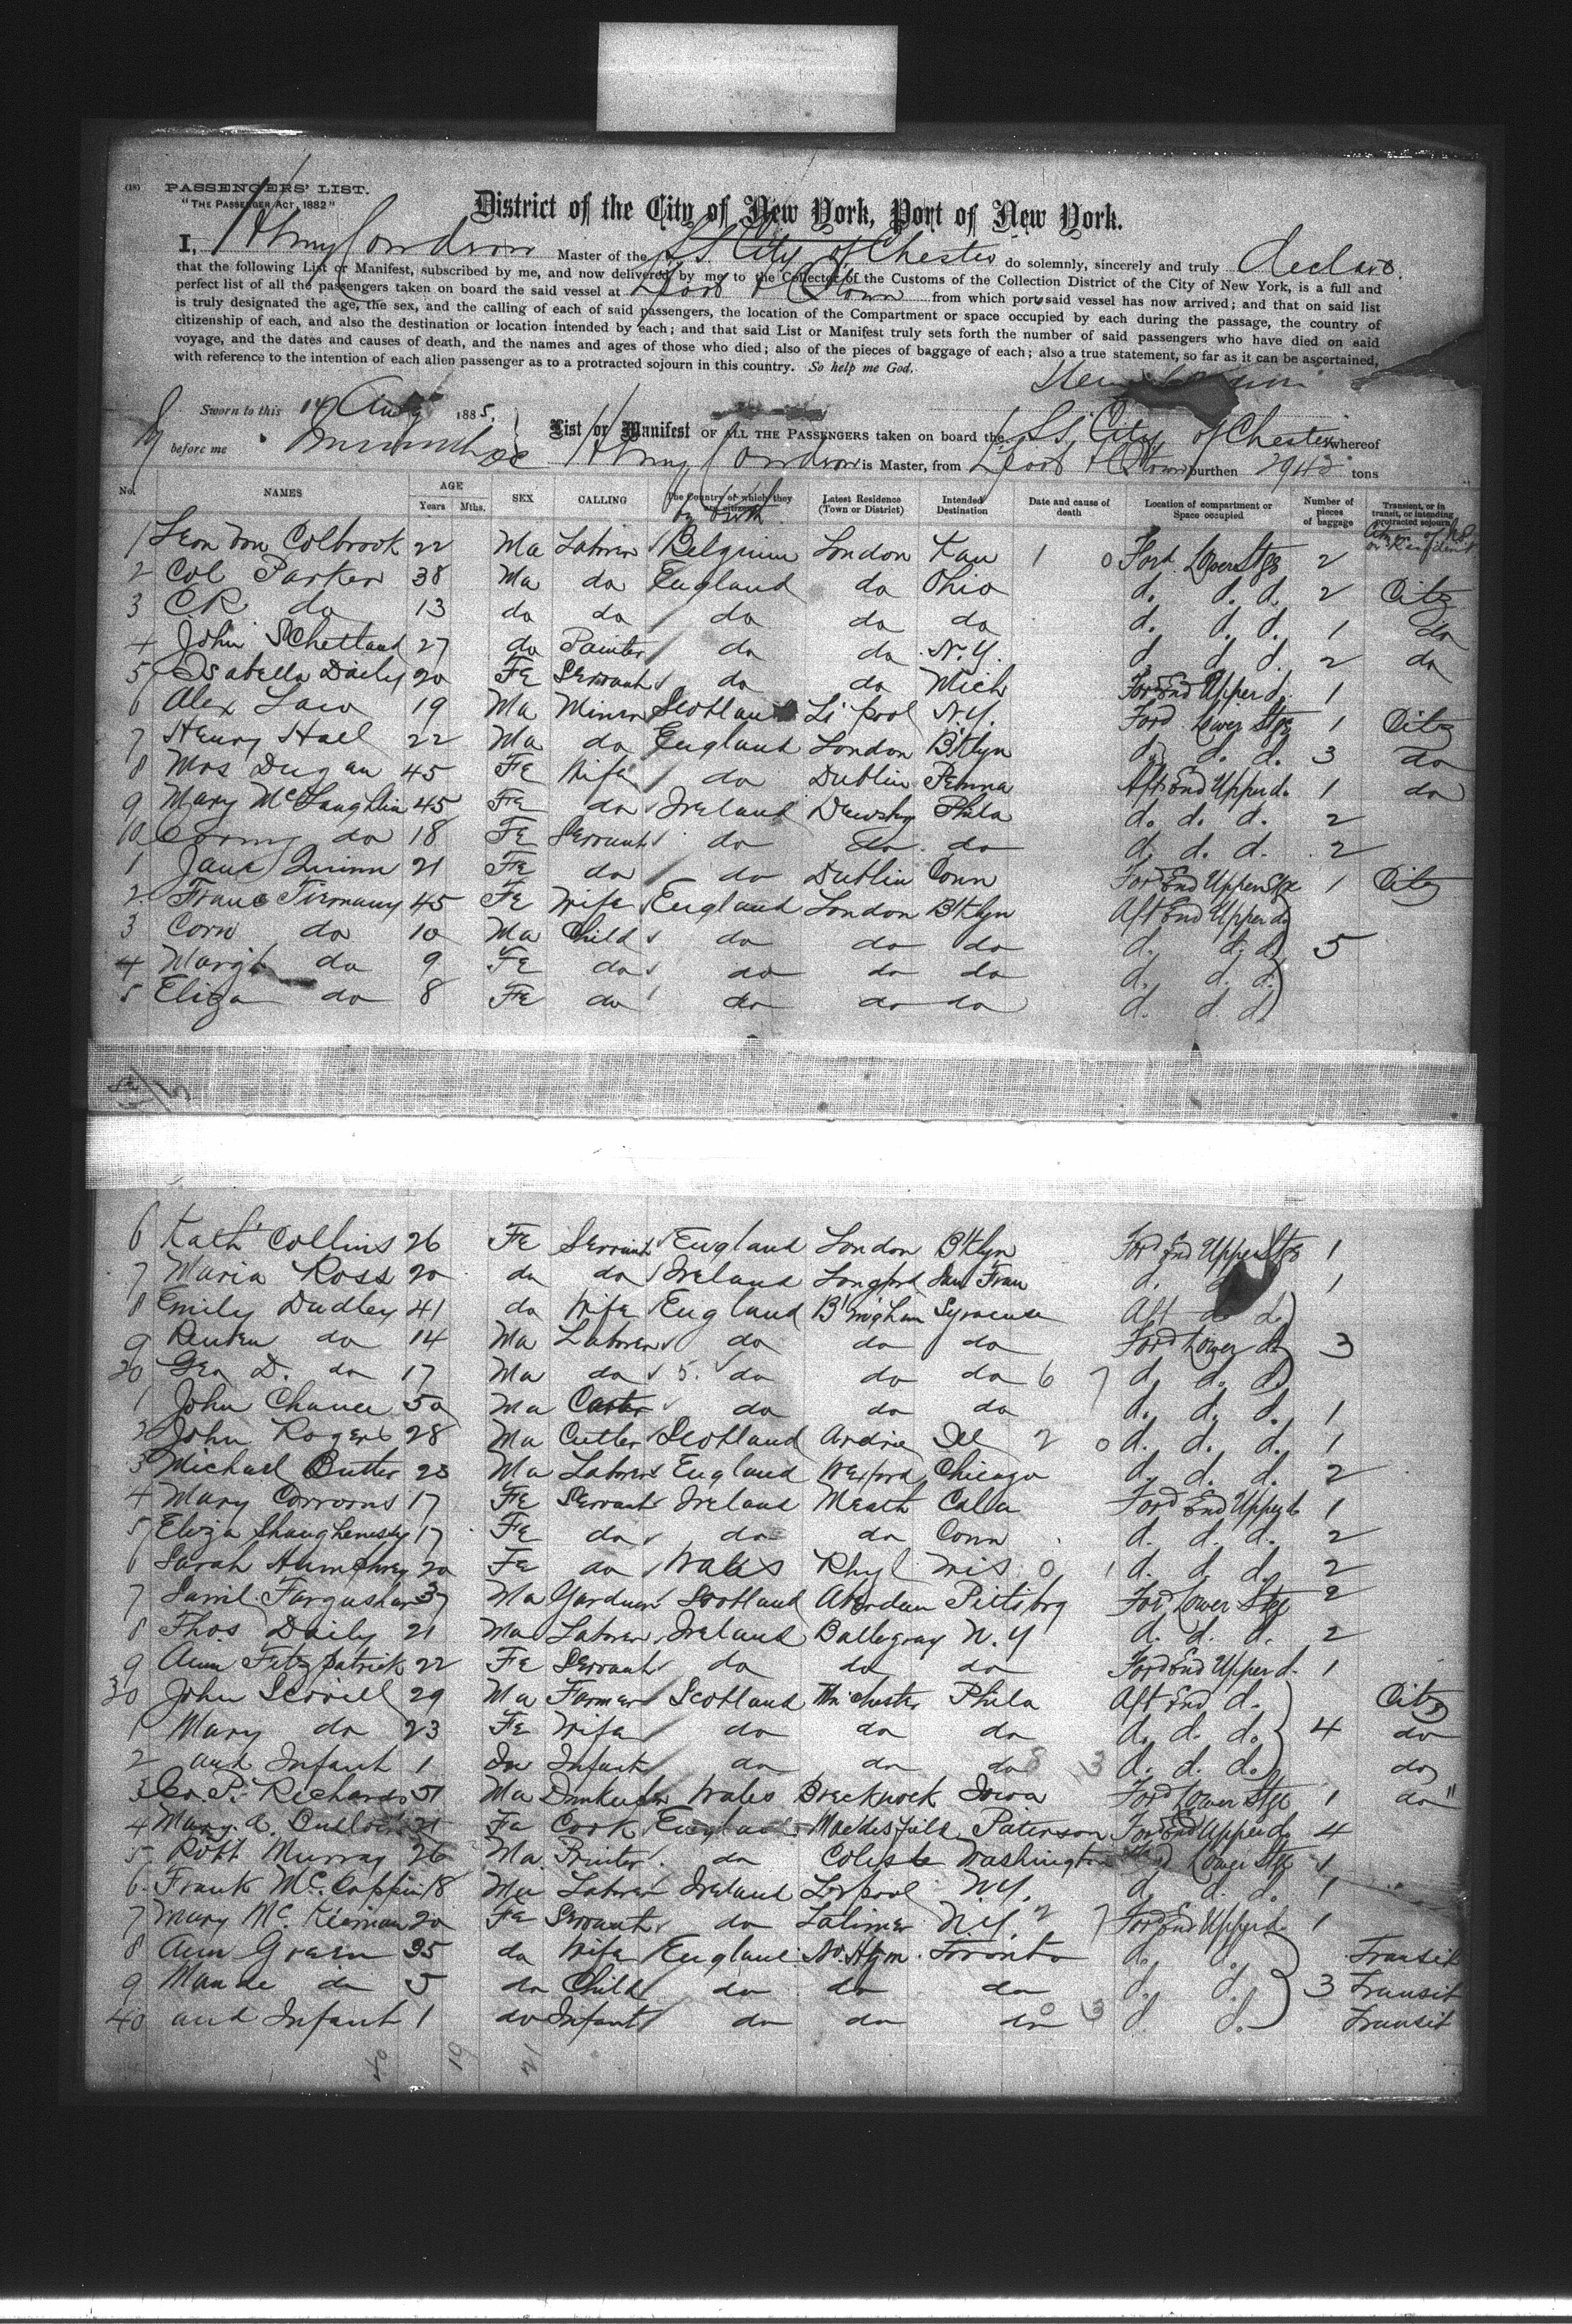 (18) PASSENGERS' LIST.
"THE PASSENGER ACT, 1882"
District of the City of New York, Port of New York.
I, Henry Condron Master of the S.S. City of Chester do solemnly, sincerely and truly declare
that the following List or Manifest, subscribed by me, and now delivered by me to the Collector of the Customs of the Collection District of the City of New York, is a full and
perfect list of all the passengers taken on board the said vessel at L'pool & Q'Town from which port said vessel has now arrived; and that on said list
is truly designated the age, the sex, and the calling of each of said passengers, the location of the Compartment or space occupied by each during the passage, the country of
citizenship of each, and also the destination or location intended by each; and that said List or Manifest truly sets forth the number of said passengers who have died on said
voyage, and the dates and causes of death, and the names and ages of those who died; also of the pieces of baggage of each; also a true statement, so far as it can be ascertained,
with reference to the intention of each alien passenger as to a protracted sojourn in this country. So help me God.
Sworn to this 14 Aug 1885,
before me
List or Manifest OF ALL THE PASSENGERS taken on board the S.S. City of Chester whereof
Henry Condron is Master, from L'pool & Q'Town burthen tons
No. NAMES AGE Years Mths. SEX CALLING The Country of which they are citizens by birth Latest Residence (Town or District) Intended Destination Date and cause of death Location of compartment or Space occupied Number of pieces of baggage Transient, or in transit, or intending protracted sojourn
1 Leon Von Colbrook 22 Ma Labrer Belgium London Kan 1 0 Ford Lower Stge 2
2 Col Parker 38 Ma do England do Ohio d. d. d. 2 Citz
3 CR do 13 do do do do do d. d. d. 1 do
4 John Schelland 27 do Painter do do N.Y. d d d. 2 do
5 Isabella Daily 20 FE Servant do do Mich Ford End Upper d. 1
6 Alex Law 19 Ma Miner Scotland Li'pool N.Y. Ford Lower Stge 1 Citz
7 Henry Hall 22 Ma do England London B'klyn d. d. d. 3 do
8 Mrs Dugan 45 FE Wife do Dublin Penna Aft End Upper d. 1 do
9 Mary McLaughlin 45 FE do Ireland Phila d. d. d. 2
10 do 18 FE Servant do do do d. d. d. 2
1 Jane Quinn 21 FE do do Dublin Conn Ford End Upper Stge 1 Citz
2 45 FE Wife England London B'klyn Aft End Upper d.
3 Corn do 10 Ma Child do do do d. d. d. 5
4 Margt do 9 FE do do do do d. d. d.
5 Eliza do 8 FE do do do do d. d. d.
6 Kath Collins 26 FE Servant England London B'klyn Ford End Upper Stge 1
7 Maria Ross 20 do do Ireland Longford San Fran d. 1
8 Emily Dudley 41 do Wife England B'mgham Syracuse Aft do d.
9 Reuben do 14 Ma Labrer do do do Ford Lower d. 3
20 Geo D. do 17 Ma do 5. do do do 6 7 d. d. d.
1 John Chance 50 Ma Carter do do do d. d. d. 1
2 John Rogers 28 Ma Cutler Scotland Ardrie Ill 2 0 d. d. d. 1
3 Michael Butler 23 Ma Labrer England Wexford Chicago d. d. d. 2
4 Mary 17 FE Servant Ireland Meath Ford End Upper d. 1
5 Eliza Shaughenessy 17 FE do do do Conn d. d. d. 2
6 Sarah Humphrey 20 FE do Wales Rhyl Wis 0 1 d. d. d. 2
7 Saml Farqushar 37 Ma Gardner Scotland Aberdeen Pittsbrg Ford Lower Stge 2
8 Thos Daily 21 Ma Labrer Ireland N.Y d. d. d. 2
9 Ann Fitzpatrick 22 FE Servant do do do Ford End Upper d. 1
30 John 29 Ma Farmer Scotland M'chester Phila Aft End d. Citz
1 Mary do 23 FE Wife do do do d. d. d. 4 do
2 and Infant 1 Infant do do do 8 3 d. d. d. do
3 P. Richards 51 Ma Wales Brecknock Iowa Ford Lower Stge 1 do "
4 Mary A. 21 Fe Cook England Paterson Ford End Upper d. 4
5 Robt Murray 26 Ma Printer do Washington Lower Stge 1
6 Frank 18 Ma Labrer Ireland L'rpool N.Y. d. d. d. 1
7 Mary Mc Kiernan 20 FE Servant do N.Y. 2 7 Ford End Upper d. 1
8 Ann Green 35 do Wife England Toronto d. d. Transit
9 Maude do 5 do Child do do do d. d. 3 Transit
40 and Infant 1 do Infant do do do 0 3 d. d. Transit